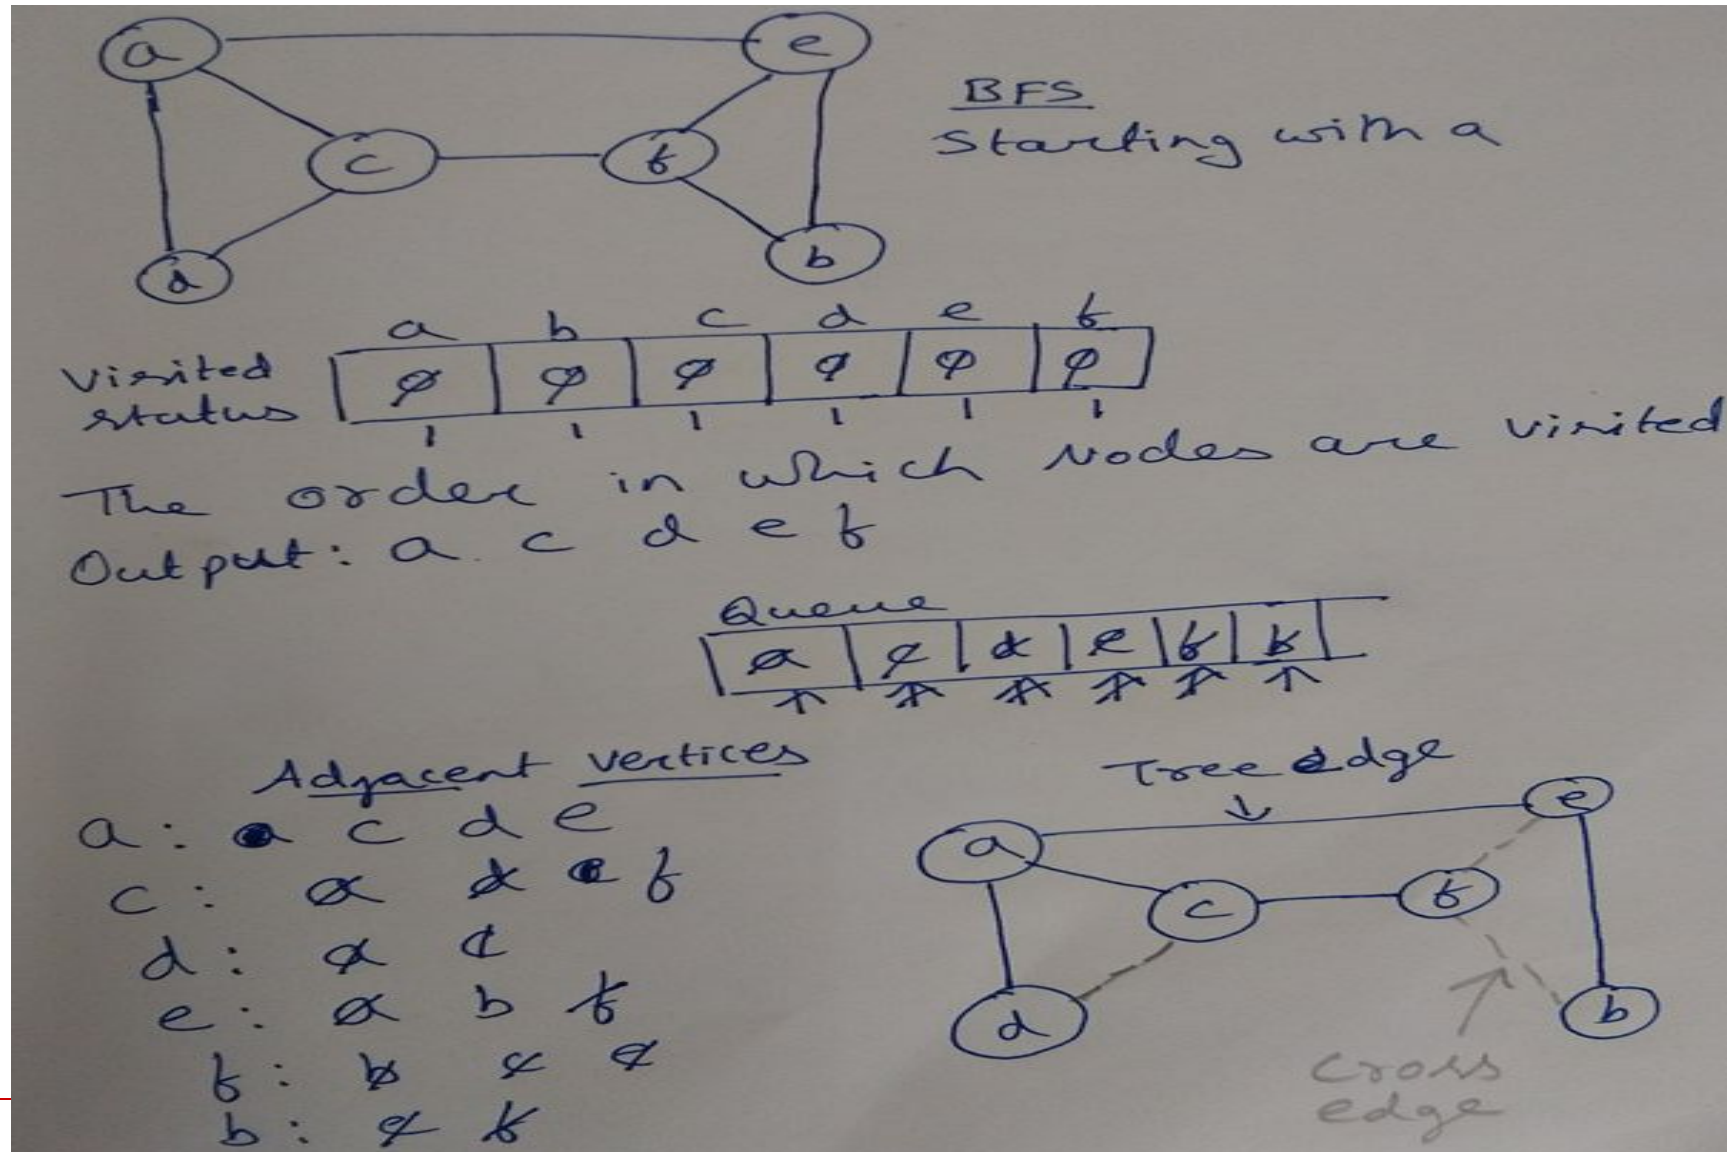 a e
c f
d b
BFS
Starting with a
a b c d e f
Visited status 0 0 0 0 0 0
1 1 1 1 1 1
The order in which Nodes are visited
Output: a c d e f
Queue
a c d e f b
Adjacent vertices
a: c d e
c: a d f
d: a c
e: a b f
f: b c e
b: e f
Tree edge
a e
c f
d b
Cross edge